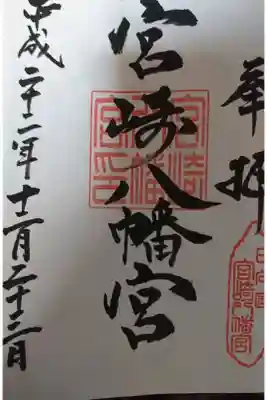 奉拝
日向国
宮崎八幡宮
宮崎八幡宮
宮崎
八幡
宮印
平成二十二年十二月二十三日